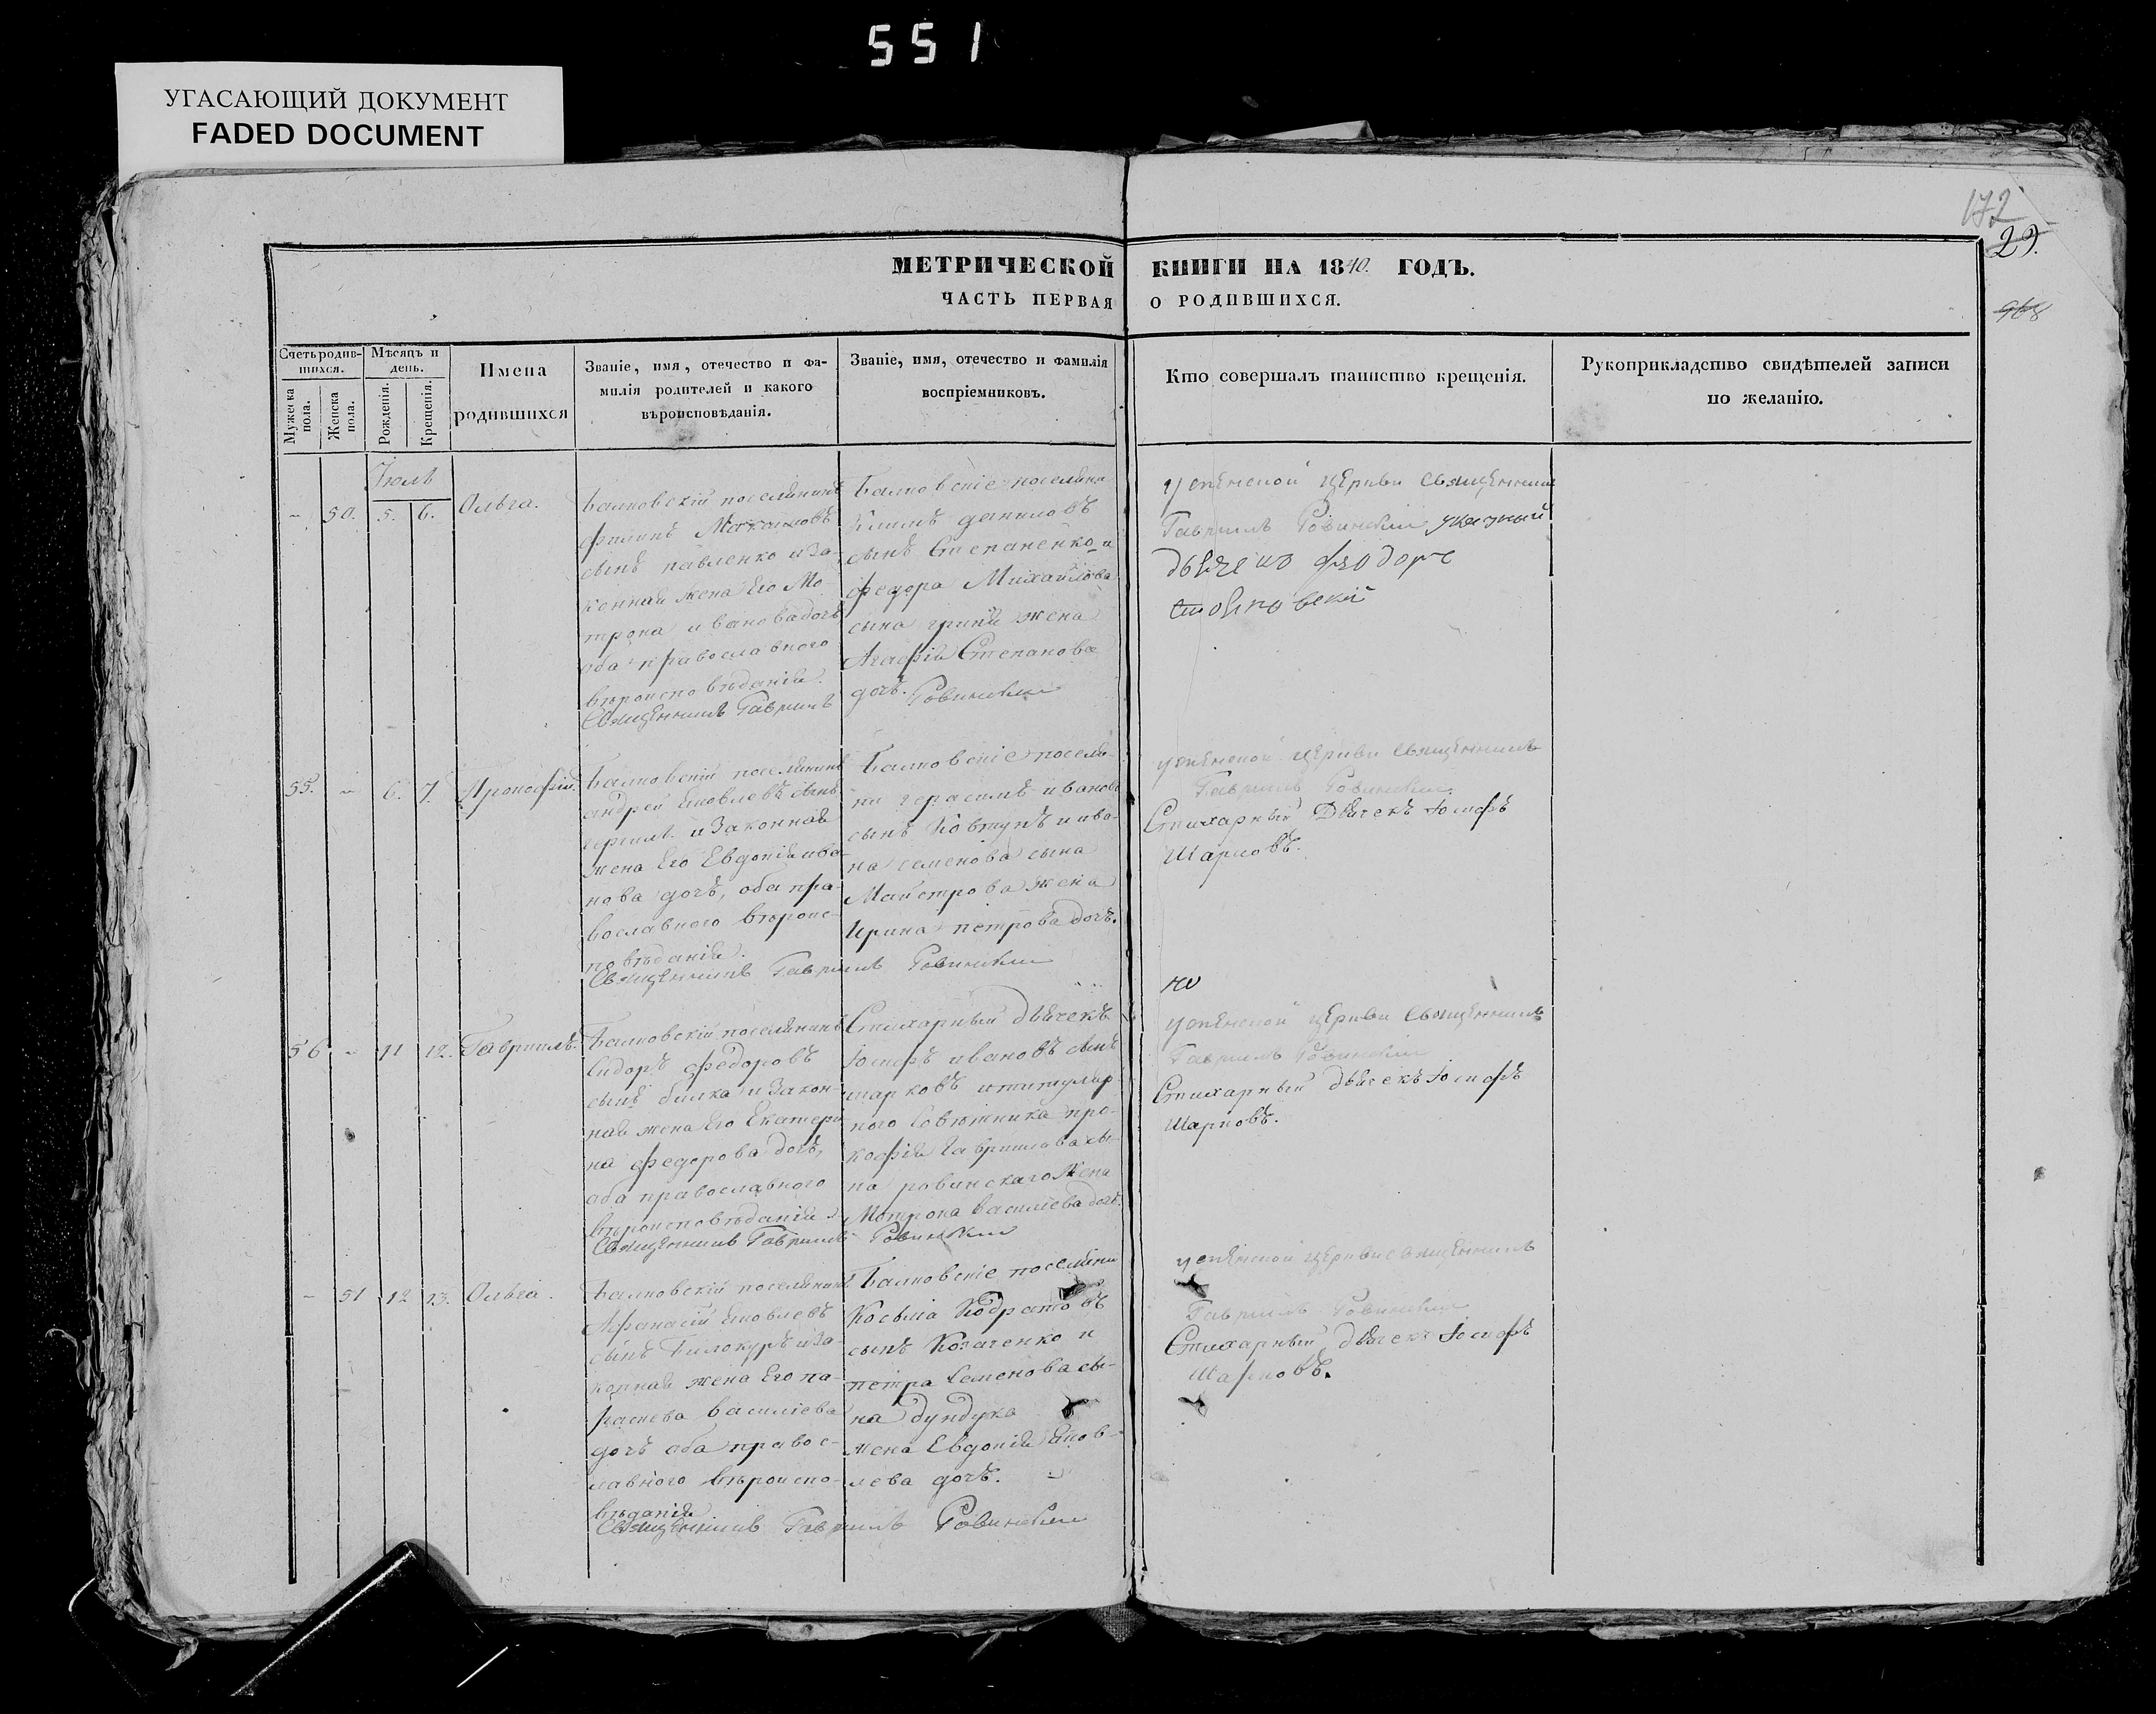 551
УГАСАЮЩИЙ ДОКУМЕНТ
FADED DOCUMENT
172
29.
968
МЕТРИЧЕСКОЙ КНИГИ НА 1840. ГОДЪ.
ЧАСТЬ ПЕРВАЯ О РОДИВШИХСЯ.
Счетъ родив-
шихся.
Мужеска
пола.
Женска
пола.
Мѣсяцъ и
день.
Рожденія.
Крещенія.
Имена
родившихся
Званіе, имя, отечество и фа-
милія родителей и какого
вѣроисповѣданія.
Званіе, имя, отечество и фамилія
воспріемниковъ.
Кто совершалъ таинство крещенія.
Рукоприкладство свидѣтелей записи
по желанію.
Іюль
50. 5. 6. Ольга.
поселянинъ
Филипъ
сынъ павленко и за-
конная жена Его Мо-
трона иванова дочь
оба православного
вѣроисповѣданія.
Священникъ Гавриилъ Ровинскій
поселяни
Климъ даниловъ
сынъ Степаненко и
федора Михайлова
сына жена
Агафія Степанова
дочь.
Успенской церкви Священникъ
Гавриилъ Ровинскій указный
55. 6. 7. Прокофій.
поселянинъ
андрей яковлевъ сынъ
и законная
жена Его Евдокія ива-
нова дочь, оба пра-
вославного вѣроис-
повѣданія.
Священникъ Гавриилъ Ровинскій
поселя-
ни герасимъ ивановъ
сынъ Ковтунъ и ива-
на семенова сына
Майстрова жена
Ирина петрова дочь.
Успенской церкви Священникъ
Гавриилъ Ровинскій
Стихарный Дьячекъ Іосифъ
Шарковъ.
56 11 12. Гавриилъ.
поселянинъ
Сидоръ федоровъ
сынъ билка и закон-
ная жена Его Екатери
на федорова дочь,
оба православного
вѣроисповѣданія.
Священникъ Гавриилъ Ровинскій
Стихарный дьячекъ
Іосифъ ивановъ сынъ
шарковъ и титуляр-
ного Совѣтника про-
кофія Гавриилова сы-
на ровинскаго Жена
Мотрона василіева дочь.
Успенской церкви Священникъ
Гавриилъ Ровинскій
Стихарный дьячекъ Іосифъ
Шарковъ.
51 12 13. Ольга.
поселянинъ
Афанасій яковлевъ
сынъ Билокуръ и за-
конная жена Его па-
раскева василіева
дочь оба правос-
лавного вѣроиспо-
вѣданія
Священникъ Гавриилъ Ровинскій
поселяни
Косьма Кодратовъ
сынъ Козаченко и
петра Семенова сы-
на дундука
жена Евдокія яков-
лева дочь.
Успенской церкви священникъ
Гавриилъ Ровинскій
Стихарный дьячекъ Іосифъ
Шарковъ.